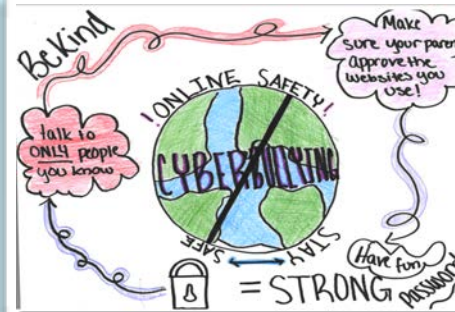 Be Kind
Make
sure your paren
Approve the
websites you
use!
! ONLINE SAFETY !
talk to
ONLY people
you know
CYBERBULLYING
STAY
SAFE
Have fun
= STRONG
password